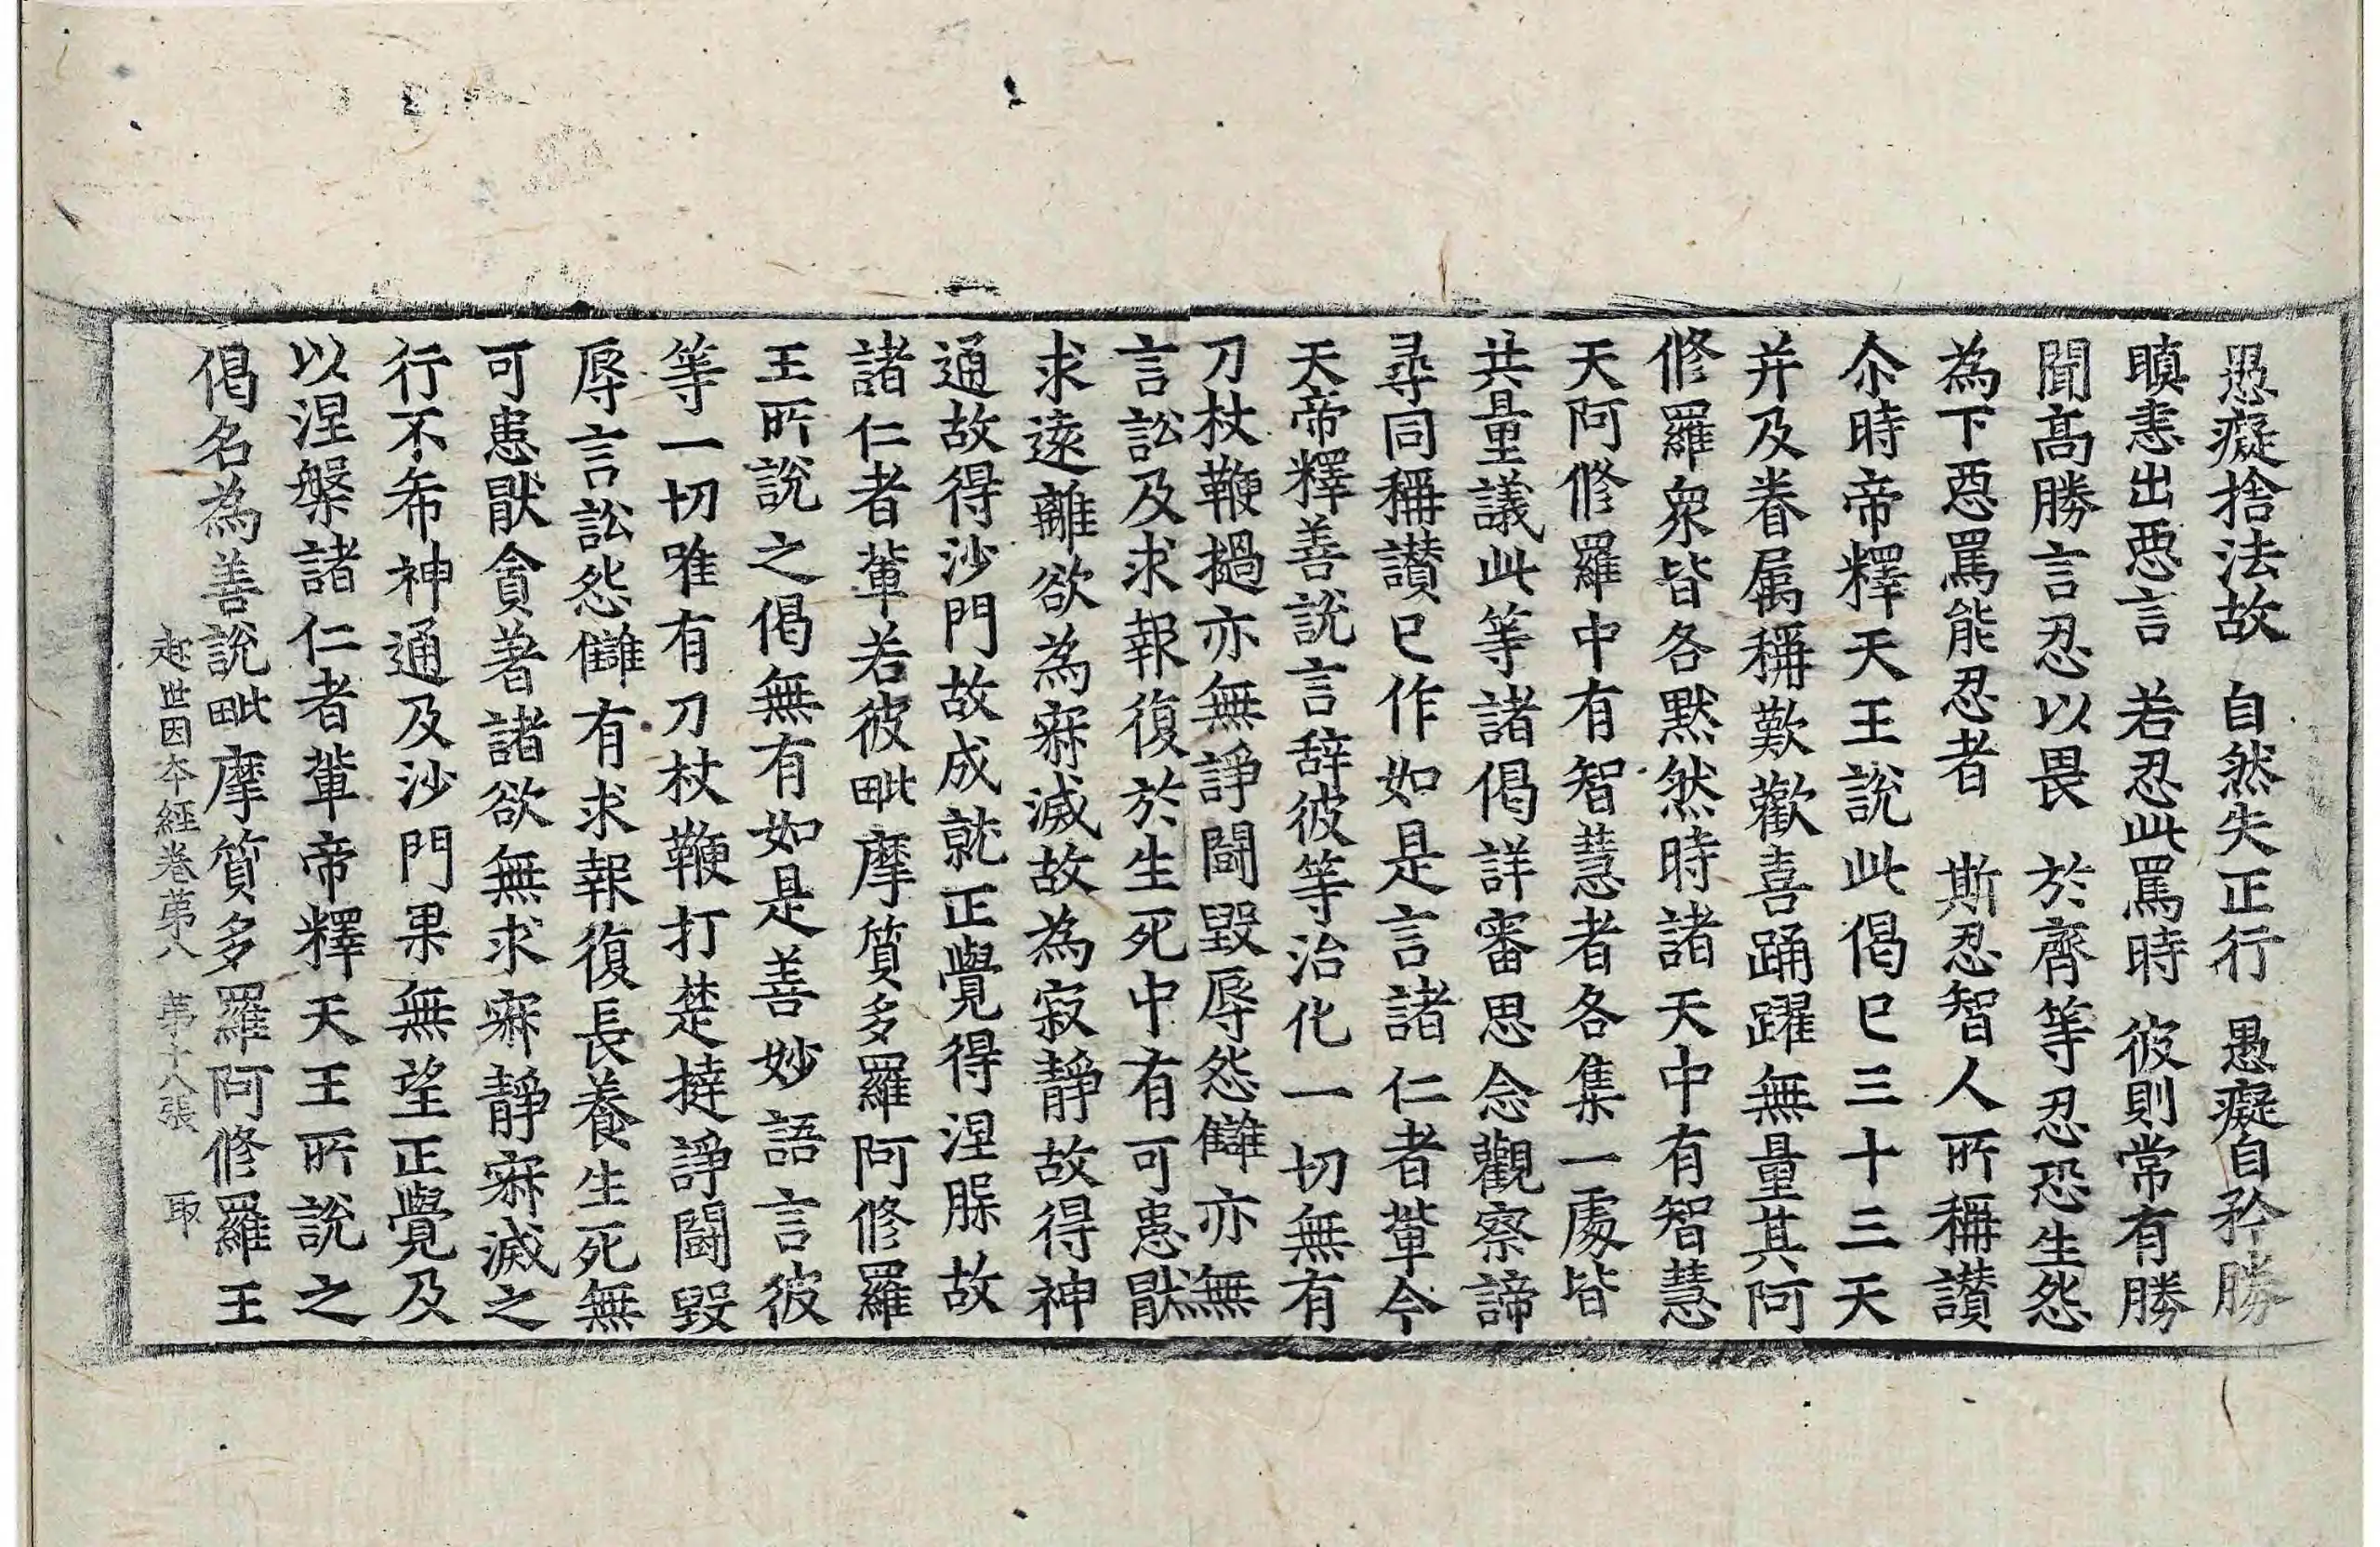 愚癡捨法故　自然失正行　愚癡自矜勝
瞋恚出惡言　若忍此罵時　彼則常有勝
聞高勝言忍以畏　於齊等忍恐生怨
為下惡罵能忍者　斯忍智人所稱讃
尒時帝釋天王說此偈已三十三天
并及眷属稱歎歡喜踊躍無量其阿
修羅衆皆各默然時諸天中有智慧
天阿修羅中有智慧者各集一處皆
共量議此等諸偈詳審思念觀察諦
尋同稱讃已作如是言諸仁者輩今
天帝釋善說言辞彼等治化一切無有
刀杖鞭撾亦無諍鬪毀辱怨讎亦無
言訟及求報復於生死中有可患猒
求遠離欲為寂滅故為寂靜故得神
通故得沙門故成就正覺得涅槃故
諸仁者輩若彼毗摩質多羅阿修羅
王所說之偈無有如是善妙語言彼
等一切唯有刀杖鞭打楚撻諍鬪毀
辱言訟怨讎有求報復長養生死無
可患猒貪著諸欲無求寂靜寂滅之
行不希神通及沙門果無望正覺及
以涅槃諸仁者輩帝釋天王所說之
偈名為善說毗摩質多羅阿修羅王
起世因本經卷苐八　苐十八張　取